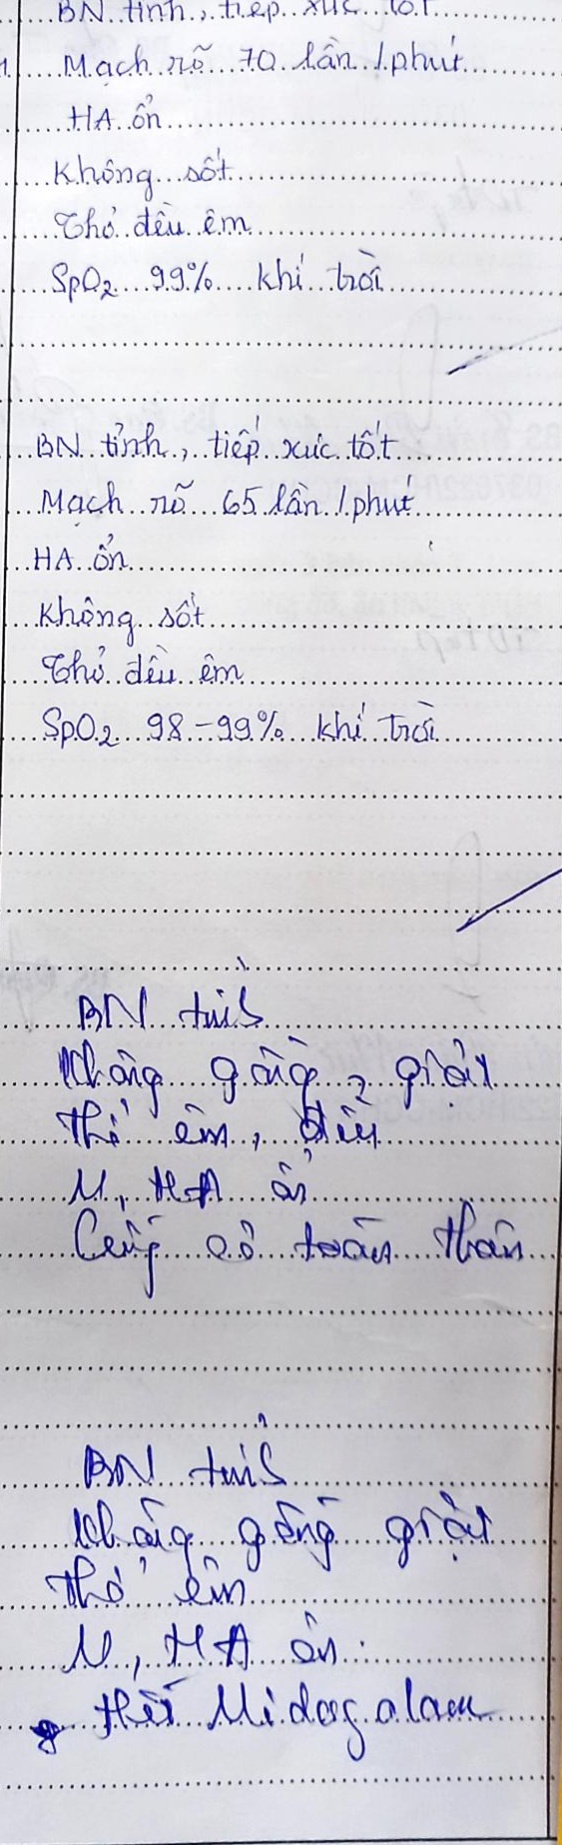 BN tỉnh, tiếp xúc tốt
Mạch rõ 70 lần /phút
HA ổn
Không sốt
Thở đều êm
SpO2 99% khí trời
BN tỉnh, tiếp xúc tốt
Mạch rõ 65 lần /phút
HA ổn
Không sốt
Thở đều êm
SpO2 98-99% khí trời
BN tỉnh
Không gồng, giật
Thở êm, đều
M, HA ổn
Cứng cơ toàn thân
BN tỉnh
Không gồng giật
Thở êm
M, HA ổn
Hết Midazolam